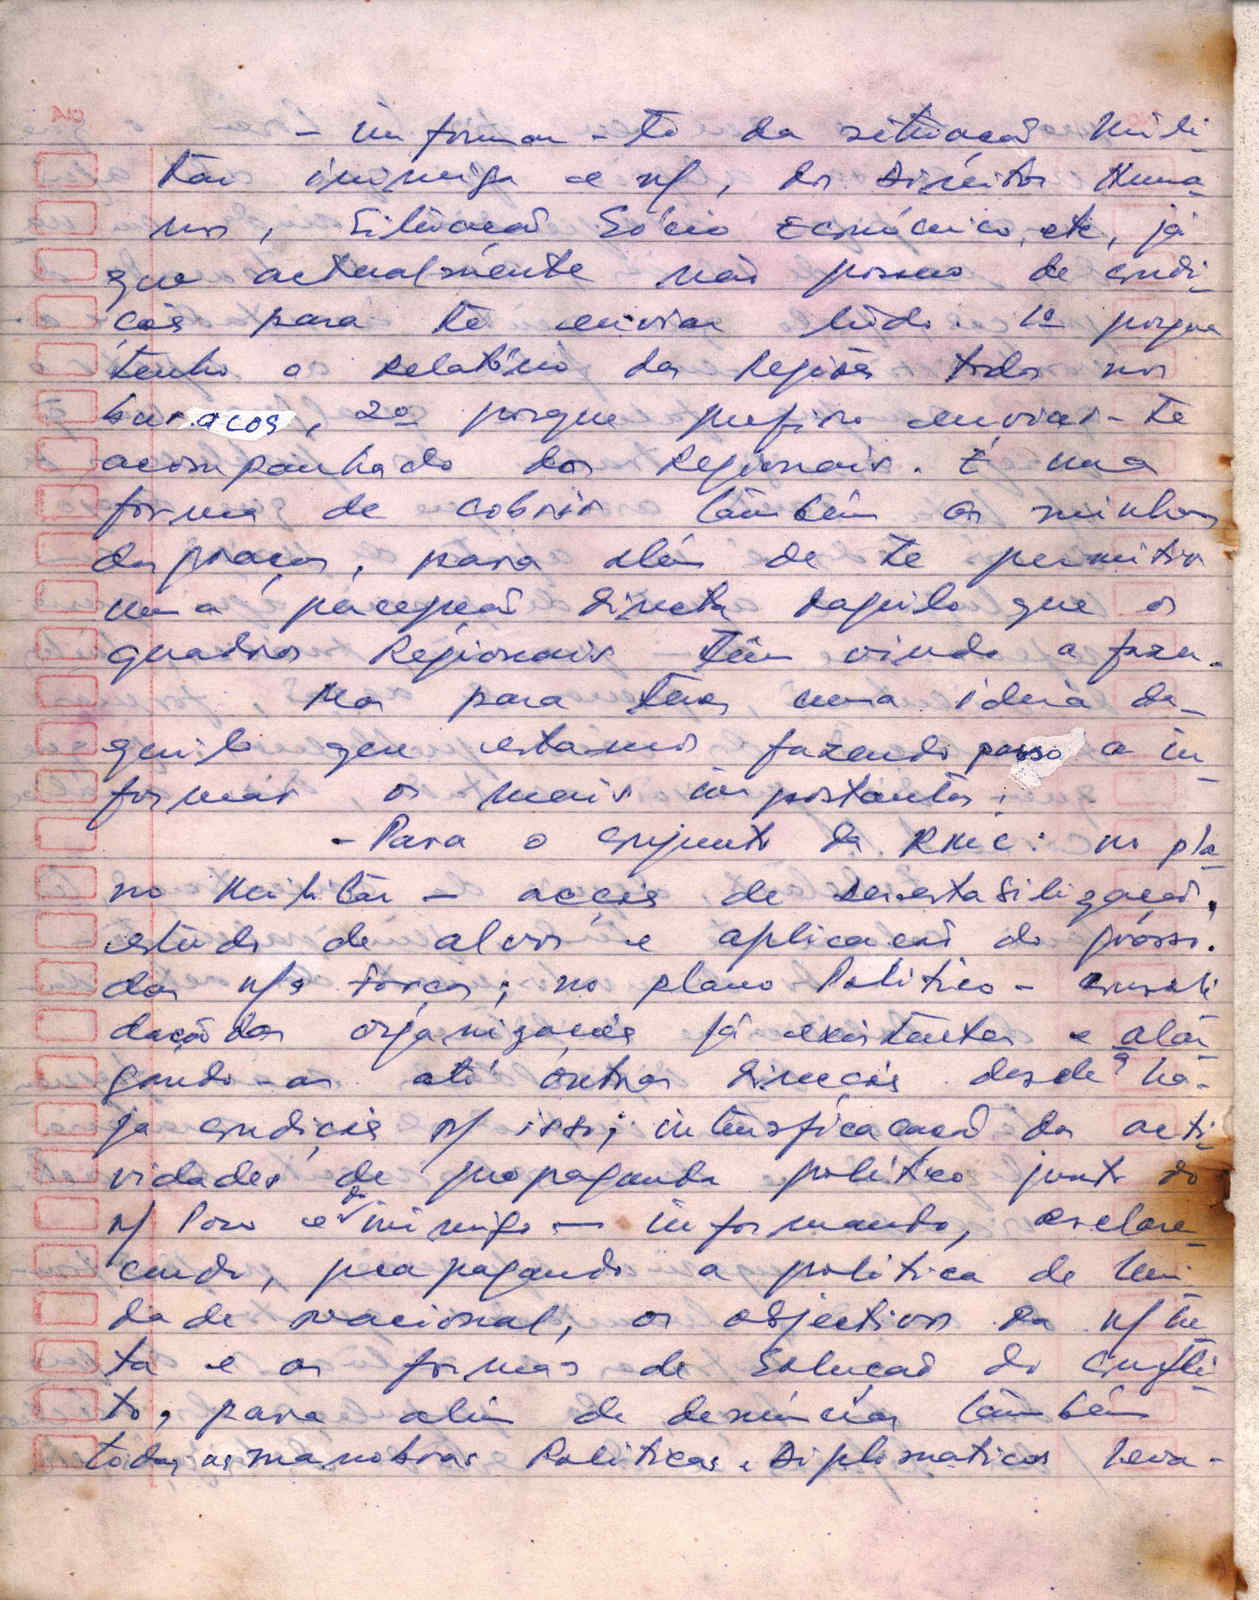 - informar-te da situação Mili-
tar inimiga e n/, dos Direitos Huma-
nos, Situação Sócio Económico, etc, já
que actualmente não posso de condi-
ções para te enviar tudo. 1º porque
tenho o Relatório das Regiões todos nos
buracos, 2º porque prefiro enviar-te
acompanhado dos Regionais. É uma
forma de cobrir também as minhas
desgraças, para além de te permitir
uma percepção directa daquilo que os
quadros Regionais têm vindo a fazer.
Mas para teres uma ideia da-
quilo que estamos fazendo passo a in-
formar os mais importantes:
- Para o conjunto da RNIC: no pla-
no Militar - acções de Desestabilização,
estudo de alvos e aplicação do grosso
das n/s Forças; no plano Político - consoli
dação das organizações já existentes e alar-
gando-as até outras direcções desde q ha-
ja condições p/ isso; intensificação da acti-
vidades de propaganda político junto do
n/ Povo e do inimigo - informando, esclare-
cendo, propagando a política de Uni-
dade nacional, os objectivos da n/ lu
ta e as formas de Solução do confli-
to, para além de denúncias também
todas as manobras Políticas e Diplomáticas leva-